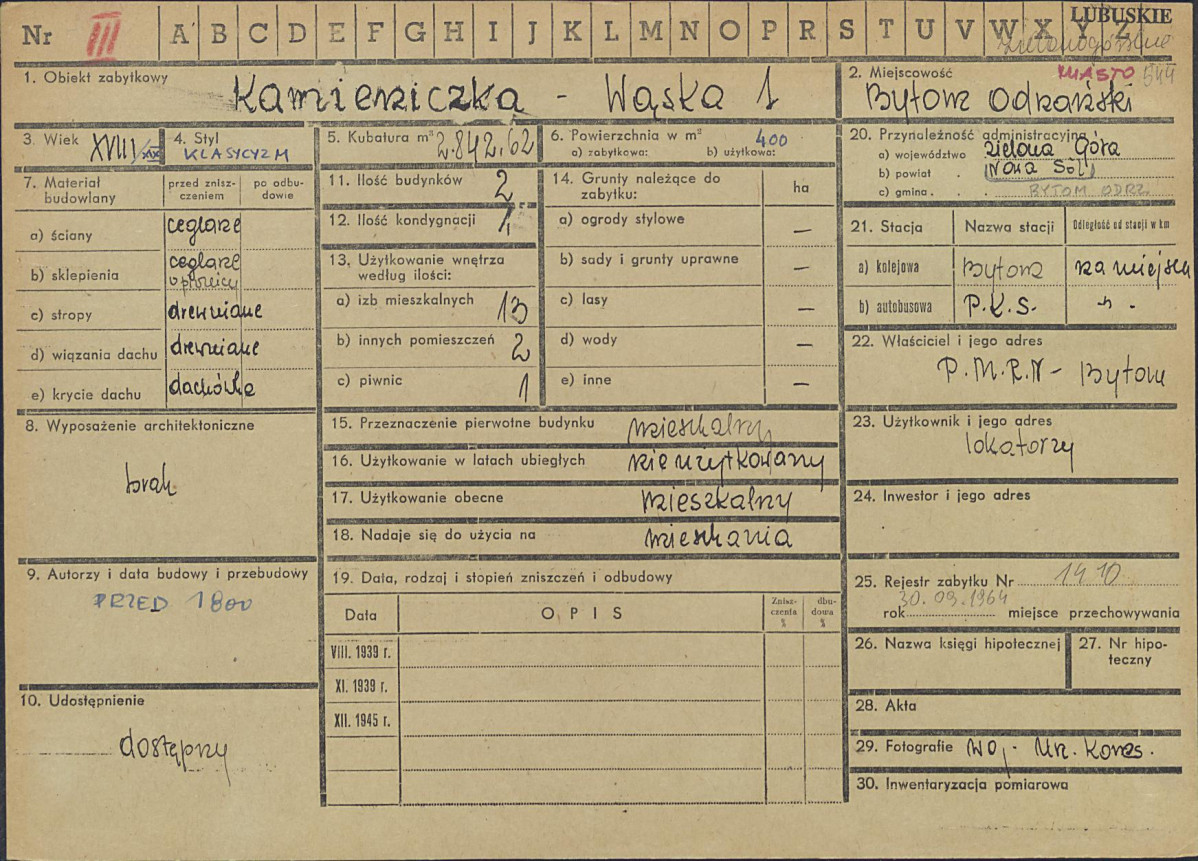 Nr III A B C D E F G H I J K L M N O P R S T U V W X Y Z LUBUSKIE
zielonogórskie
1. Obiekt zabytkowy
Kamieniczka - Wąska 1
2. Miejscowość MIASTO 544
Bytom Odrzański
3. Wiek XVIII/XIX
4. Styl
KLASYCYZM
5. Kubatura m³ 2.842.62
6. Powierzchnia w m² 400
a) zabytkowa: b) użytkowa:
7. Materiał budowlany
przed znisz-
czeniem
po odbu-
dowie
a) ściany ceglane
b) sklepienia ceglane
w piwnicy
c) stropy drewniane
d) wiązania dachu drewniane
e) krycie dachu dachówka
8. Wyposażenie architektoniczne
brak
9. Autorzy i data budowy i przebudowy
PRZED 1800
10. Udostępnienie
dostępny
11. Ilość budynków 2
12. Ilość kondygnacji 1
13. Użytkowanie wnętrza
według ilości:
a) izb mieszkalnych 13
b) innych pomieszczeń 2
c) piwnic 1
14. Grunty należące do
zabytku:
ha
a) ogrody stylowe —
b) sady i grunty uprawne —
c) lasy —
d) wody —
e) inne —
15. Przeznaczenie pierwotne budynku mieszkalny
16. Użytkowanie w latach ubiegłych nie użytkowany
17. Użytkowanie obecne mieszkalny
18. Nadaje się do użycia na mieszkania
19. Data, rodzaj i stopień zniszczeń i odbudowy
Data OPIS
Znisz-
czenia
%
dbu-
dowa
%
VIII. 1939 r.
XI. 1939 r.
XII. 1945 r.
20. Przynależność administracyjna
a) województwo Zielona Góra
b) powiat . (Nowa Sól)
c) gmina . . BYTOM ODRZ.
21. Stacja Nazwa stacji Odległość od stacji w km
a) kolejowa Bytom na miejscu
b) autobusowa P.K.S. -"-
22. Właściciel i jego adres
P.M.R.N - Bytom
23. Użytkownik i jego adres
lokatorzy
24. Inwestor i jego adres
25. Rejestr zabytku Nr 1410
30.09.1964
rok miejsce przechowywania
26. Nazwa księgi hipotecznej
27. Nr hipo-
teczny
28. Akta
29. Fotografie Woj. Urz. Kons.
30. Inwentaryzacja pomiarowa